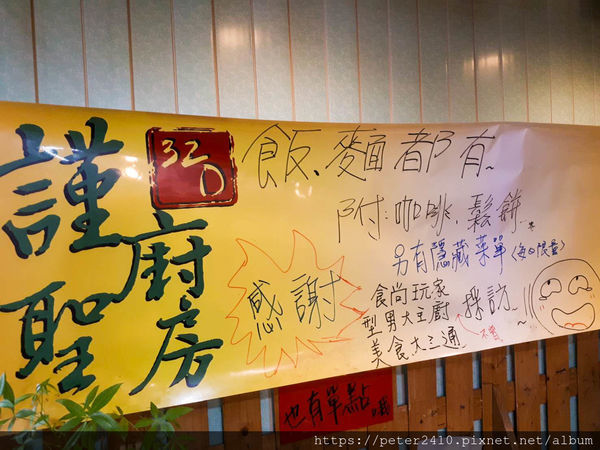 謹聖
廚房
320
飯、麵都有~
附:咖啡、鬆餅
另有隱藏菜單(每日限量)
感謝
食尚玩家
型男大主廚
美食大三通
採訪
也有單點
https://peter2410.pixnet.net/album